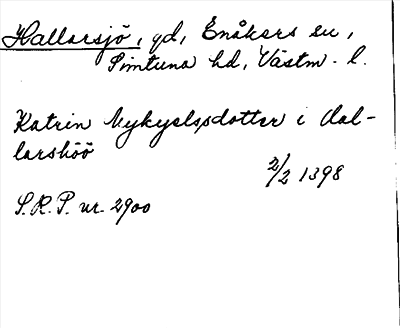 Hallarsjö, gd, Enåkers sn,
Simtuna hd, Västm. l.
Katrin Nykyelsdotter i Hal-
larshöö
2/2 1398
S.R.P. nr. 2900